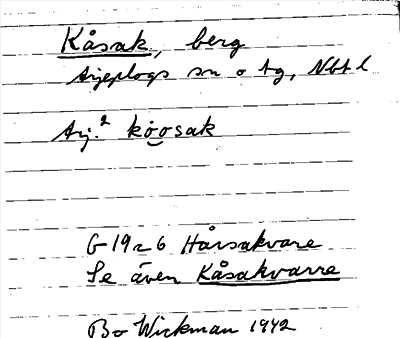 Kåsak, berg
Arjeplogs sn o tg, Nbt l
Arj.² ko͝osak
G 19 Hårsakvare
Se även Kåsakvarre
Bo Wickman 1942